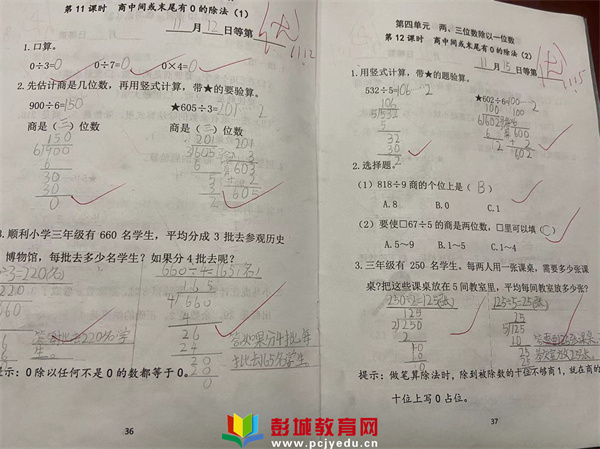 第11课时 商中间或末尾有0的除法（1）
11月12日等第
11.12
1.口算。
0÷3=0 0÷7=0 0×4=0
2.先估计商是几位数，再用竖式计算，带★的要验算。
900÷6=150 ★605÷3=201……2
商是（三）位数 商是（三）位数
150
6
30
30
0
201
3
605
201
× 3
603
+ 2
605
3.顺利小学三年级有 660 名学生，平均分成 3 批去参观历史
博物馆，每批去多少名学生？如果分 4 批去呢？
÷3=220(名)
660÷4=165(名)
220
660
165
4 660
4
26
24
20
20
0
提示：0 除以任何不是 0 的数都等于 0。
36
第四单元 两、三位数除以一位数
第12课时 商中间或末尾有0的除法（2）
11月15日等第
11.15
1.用竖式计算，带★的题验算。
532÷5=106……2 ★602÷6=100……2
106
5 532
5
32
30
2
100
6 602
6
2
100
× 6
600
+ 2
602
2.选择题。
（1）818÷9 商的个位上是（B）
A.8 B.0 C.1
（2）要使□67÷5 的商是两位数，□里可以填（C）
A.5～9 B.1～5 C.1～4
3.三年级有 250 名学生。每两人用一张课桌，需要多少张课
桌？把这些课桌放在 5 间教室里，平均每间教室放多少张？
250÷2=125(张) 125÷5=25(张)
125
2 250
2
5
4
10
10
0
25
5 125
10
25
25
0
提示：做笔算除法时，除到被除数的十位不够商1，就在商的
十位上写0占位。
37
彭城教育网
www.pcjyedu.cn